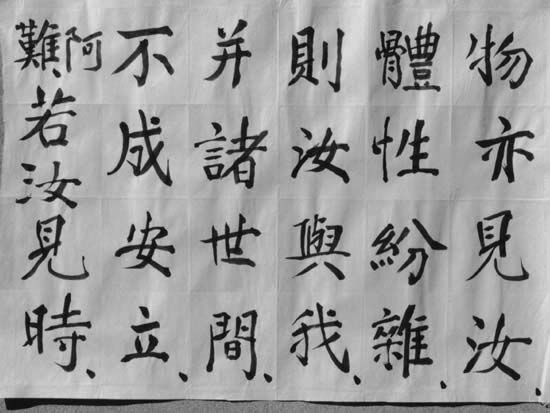 物亦見汝、
體性紛雜、
則汝與我、
并諸世間、
不成安立、
阿難、若汝見時、